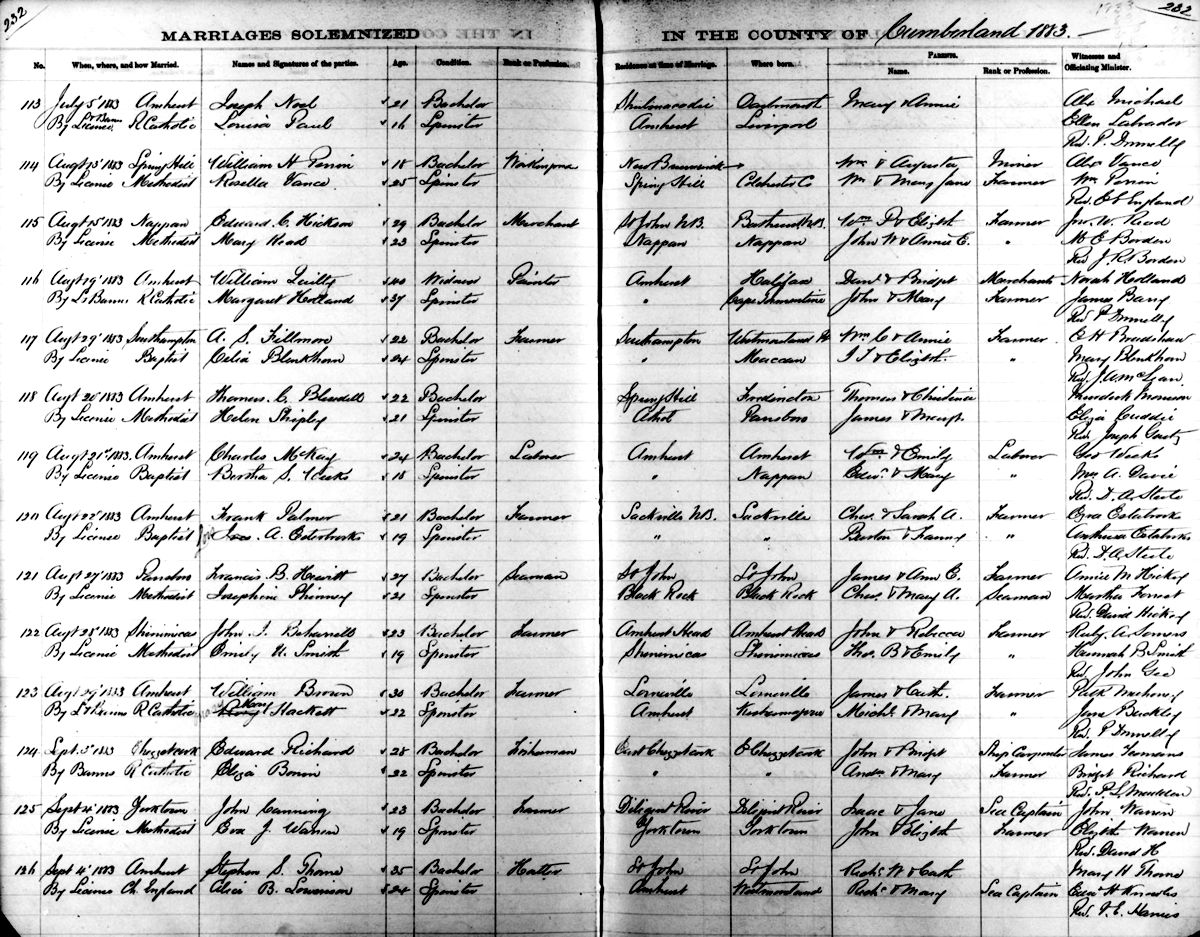 232
232
MARRIAGES SOLEMNIZED IN THE COUNTY OF Cumberland 1883.
No. When, where, and how Married. Names and Signatures of the parties. Age. Condition. Rank or Profession. Residence at time of Marriage. Where born. PARENTS. Name. Rank or Profession. Witnesses and Officiating Minister.
113 July 5' 1883 Amherst Joseph Noel 21 Bachelor Shubenacadie Dartmouth Mary & Annie Abe Michael
By License or Banns R Catholic Louisa Paul 16 Spinster Amherst Liverpool Ellen Labrador
Rev. P. Donnelly
114 Augt 15' 1883 Spring Hill William H Perrin 18 Bachelor New Brunswick Wm & Augusta Miner Alexr Vance
By License Methodist Rosella Vance 25 Spinster Spring Hill Colchester Co Wm & Mary Jane Farmer Wm Perrin
Rev. England
115 Augt 15' 1883 Nappan Edward C. Hickson 29 Bachelor Merchant St John N.B. Bathurst N.B. Wm & Elizth Farmer Jno. W. Read
By License Methodist Mary Read 23 Spinster Nappan Nappan John W & Annie E. " M E Borden
Rev J. R. Borden
116 Augt 19' 1883 Amherst William 40 Widower Painter Amherst Halifax Danl & Bridget Merchant Norah Holland
By Ls Banns R Catholic Margaret Holland 37 Spinster " Cape Tormentine John & Mary Farmer James Barry
Rev P Donnelly
117 Augt 29' 1883 Southampton A. S. Fillmore 22 Bachelor Farmer Southampton Westmorland Wm C & Annie Farmer
By License Baptist Celia Blenkhorn 24 Spinster " Maccan & Elizth. " Mary Blenkhorn
Rev. J. A. McLean
118 Augt 20' 1883 Amherst Thomas C. Blaisdell 22 Bachelor Spring Hill Fredericton Thomas & Christina Murdock Morrison
By License Methodist Helen Shipley 21 Spinster Athol Parrsboro James & Margt. Eliza
Rev. Joseph
119 Augt 21st 1883. Amherst Charles McKay 24 Bachelor Laborer Amherst Amherst Wm & Emily Laborer Geo Weeks
By License Baptist Bertha S. Weeks 18 Spinster " Nappan Edwd & Mary " Mrs A. Davis
Rev. D. A. Steele
120 Augt 22' 1883 Amherst Frank Palmer 21 Bachelor Farmer Sackville N.B. Sackville Chas. & Sarah A. Farmer Ezra Estabrook
By License Baptist A. Estabrook 19 Spinster " " & Fanny "
Rev. D. A. Steele
121 Augt 27' 1883 Parrsboro Francis. B. Hewitt 27 Bachelor Seaman St John St John James & Ann E. Farmer Annie M Hickey
By License Methodist Josephine Phinney 21 Spinster Black Rock Black Rock Chas. & Mary A. Seaman Martha Forrest
Rev. David Hickey
122 Augt 28' 1883 Shinimicas John 23 Bachelor Farmer Amherst Head Amherst Head John & Rebecca Farmer Ruby A Somers
By License Methodist Emily U. Smith 19 Spinster Shinimicas Shinimicas Thos. B & Emily " Hannah B Smith
Rev John Gee
123 Augt 29' 1883 Amherst William Brown 30 Bachelor Farmer Lorneville Lorneville James & Cath. Farmer
By Ls Banns R Catholic Mary Hackett 22 Spinster Amherst Michl. & Mary " Jane Buckley
Rev. P Donnelly
124 Sept. 5' 1883 Chezzetcook Edward Richard 28 Bachelor Fisherman East Chezzetcook E Chezzetcook John & Bridget Ship Carpenter James
By Banns R Catholic Eliza Bonin 22 Spinster " " Andw & Mary Farmer Bridget Richard
Rev. P. L. Madden
125 Sept 4' 1883 Yorktown John Canning 23 Bachelor Farmer Diligent River Diligent River Isaac & Jane Sea Captain John Warren
By License Methodist Eva J. Warren 19 Spinster Yorktown Yorktown John & Elizth Farmer Elizth Warren
Rev. David H
126 Sept 4' 1883 Amherst Stephen S. Thorne 35 Bachelor Hatter St John St John Richd. W & Cath Mary H Thorne
By License Ch. England Alice B. Lowerison 24 Spinster Amherst Westmorland Richd & Mary Sea Captain Edwd H Knowles
Rev. V. E. Harris